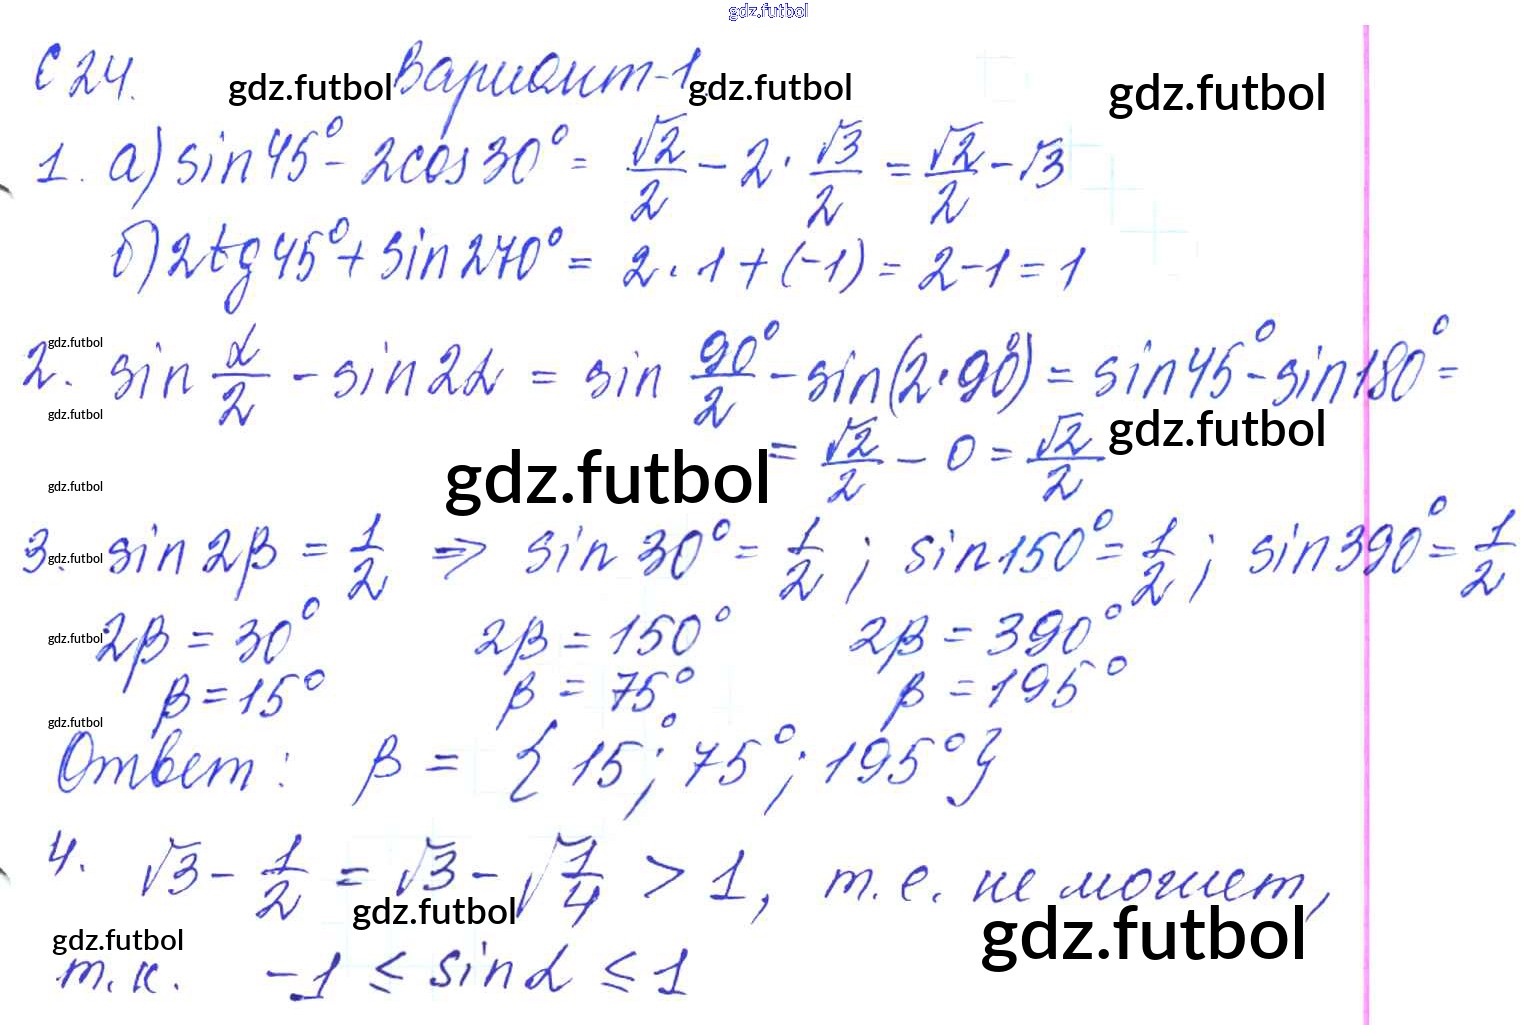 gdz.futbol
С 24. Вариант-1.
gdz.futbol gdz.futbol gdz.futbol
1. а) sin 45° - 2cos 30° = √2/2 - 2 · √3/2 = √2/2 - √3
б) 2tg 45° + sin 270° = 2 · 1 + (-1) = 2 - 1 = 1
gdz.futbol
2. sin α/2 - sin 2α = sin 90°/2 - sin(2·90°) = sin 45° - sin 180° =
gdz.futbol
= √2/2 - 0 = √2/2
gdz.futbol
gdz.futbol
gdz.futbol
3. sin 2β = 1/2 => sin 30° = 1/2 ; sin 150° = 1/2 ; sin 390° = 1/2
gdz.futbol
2β = 30° 2β = 150° 2β = 390°
gdz.futbol
β = 15° β = 75° β = 195°
gdz.futbol
Ответ: β = {15°; 75°; 195°}
4. √3 - 1/2 = √3 - √1/4 > 1, т.е. не может,
gdz.futbol
gdz.futbol
gdz.futbol
т.к. -1 ≤ sin α ≤ 1